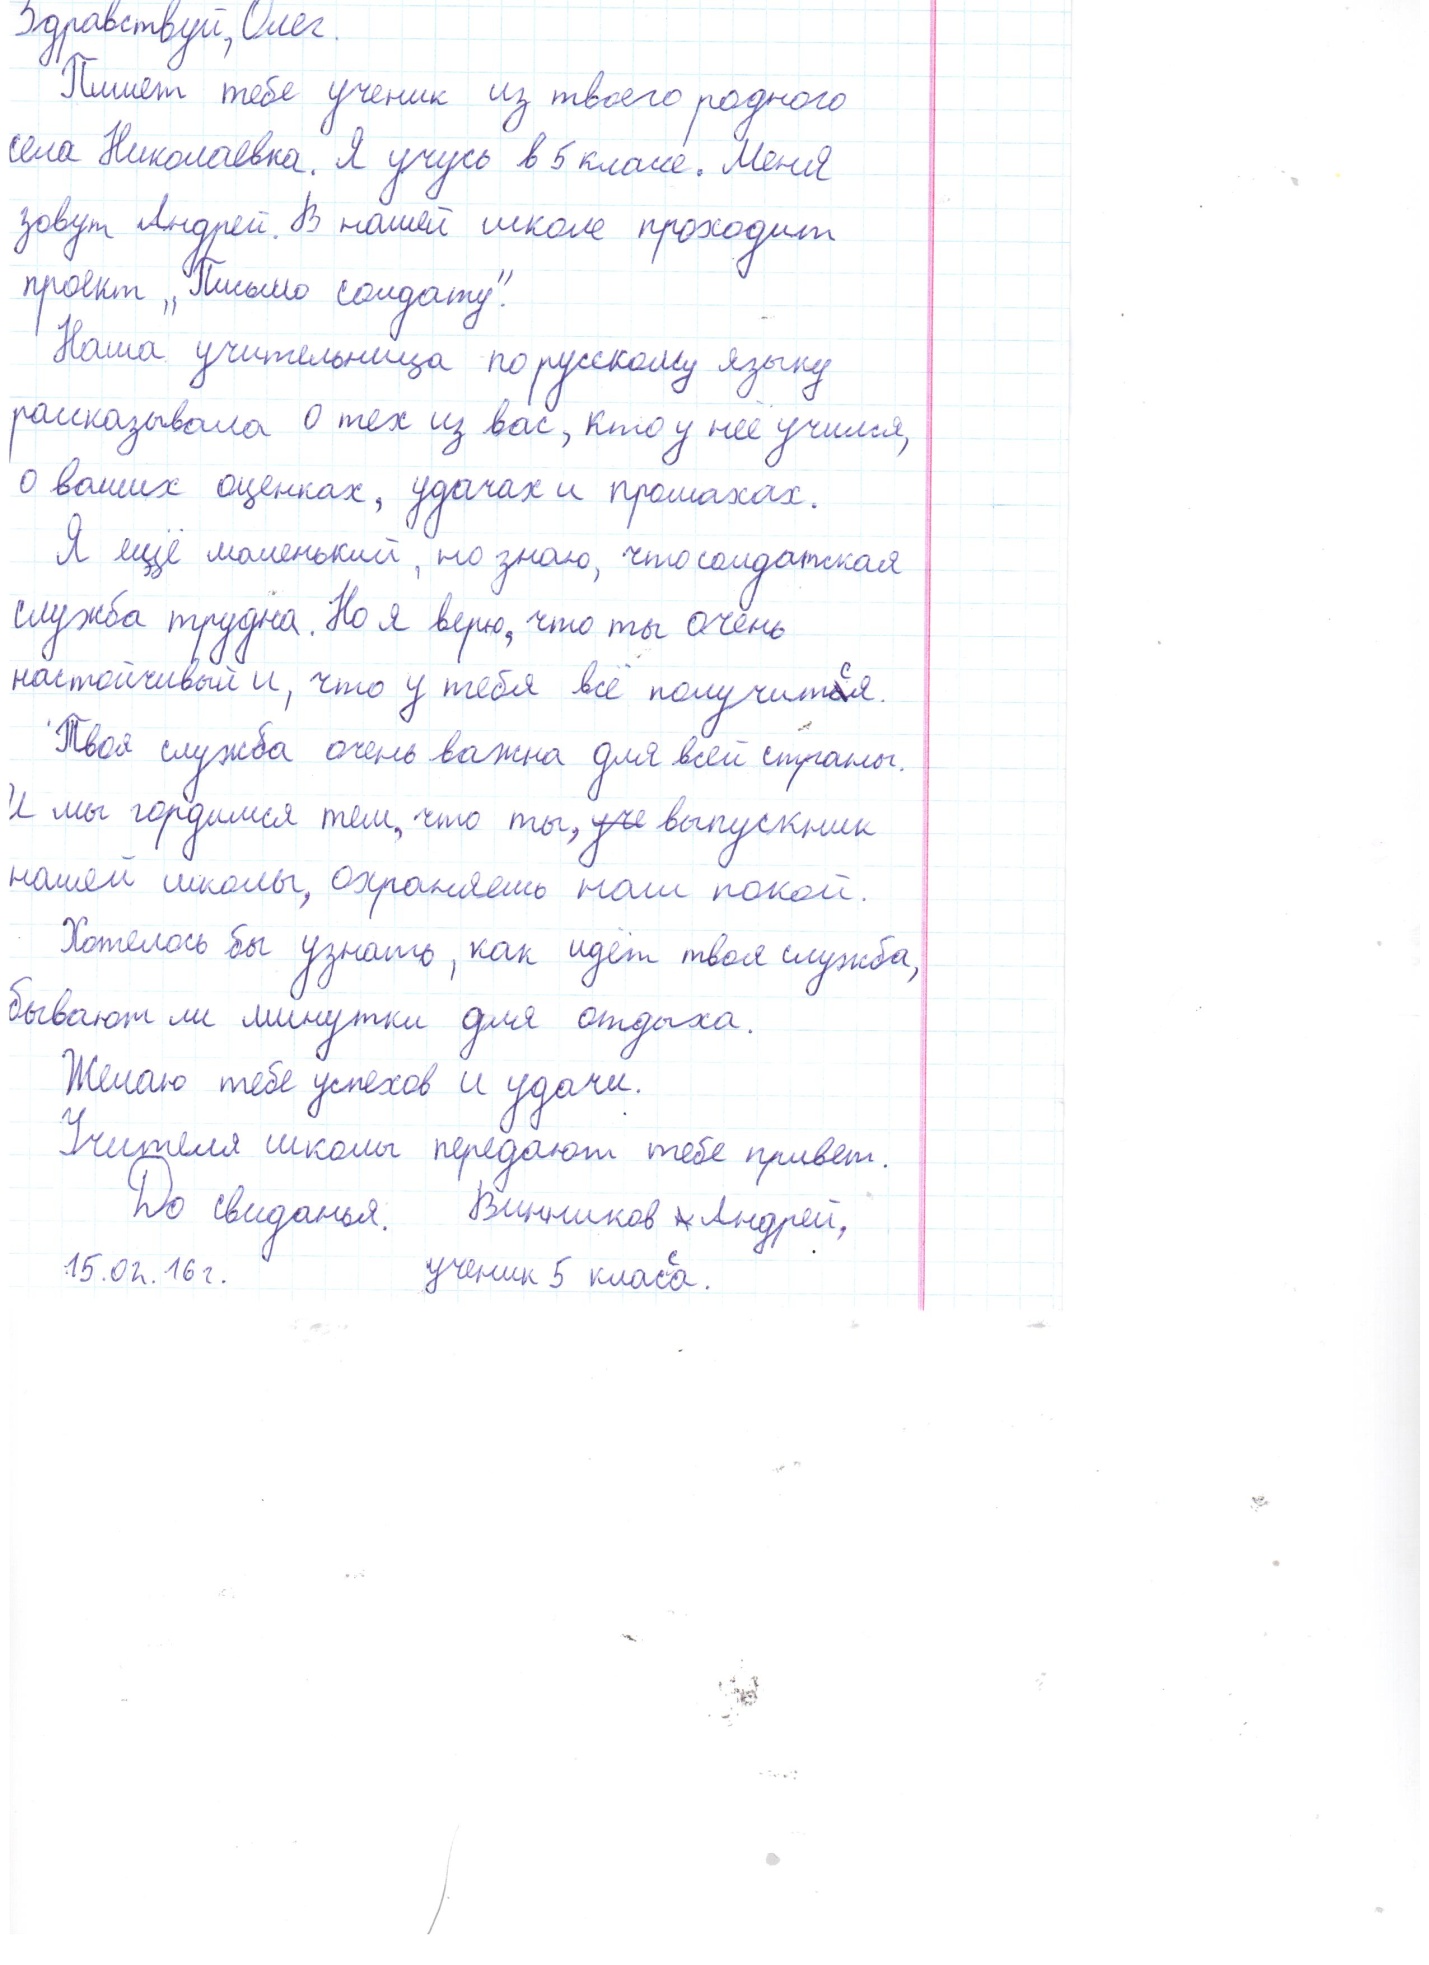 Здравствуй, Олег.
Пишет тебе ученик из твоего родного
села Николаевка. Я учусь в 5 классе. Меня
зовут Андрей. В нашей школе проходит
проект „Письмо солдату".
Наша учительница по русскому языку
рассказывала о тех из вас, кто у неё учился,
о ваших оценках, удачах и промахах.
Я ещё маленький, но знаю, что солдатская
служба трудна. Но я верю, что ты очень
настойчивый и, что у тебя всё получится.
Твоя служба очень важна для всей страны.
И мы гордимся тем, что ты, уче выпускник
нашей школы, охраняешь наш покой.
Хотелось бы узнать, как идёт твоя служба,
бывают ли минутки для отдыха.
Желаю тебе успехов и удачи.
Учителя школы передают тебе привет.
До свиданья. Винников Андрей,
15.02.16г. ученик 5 класса.